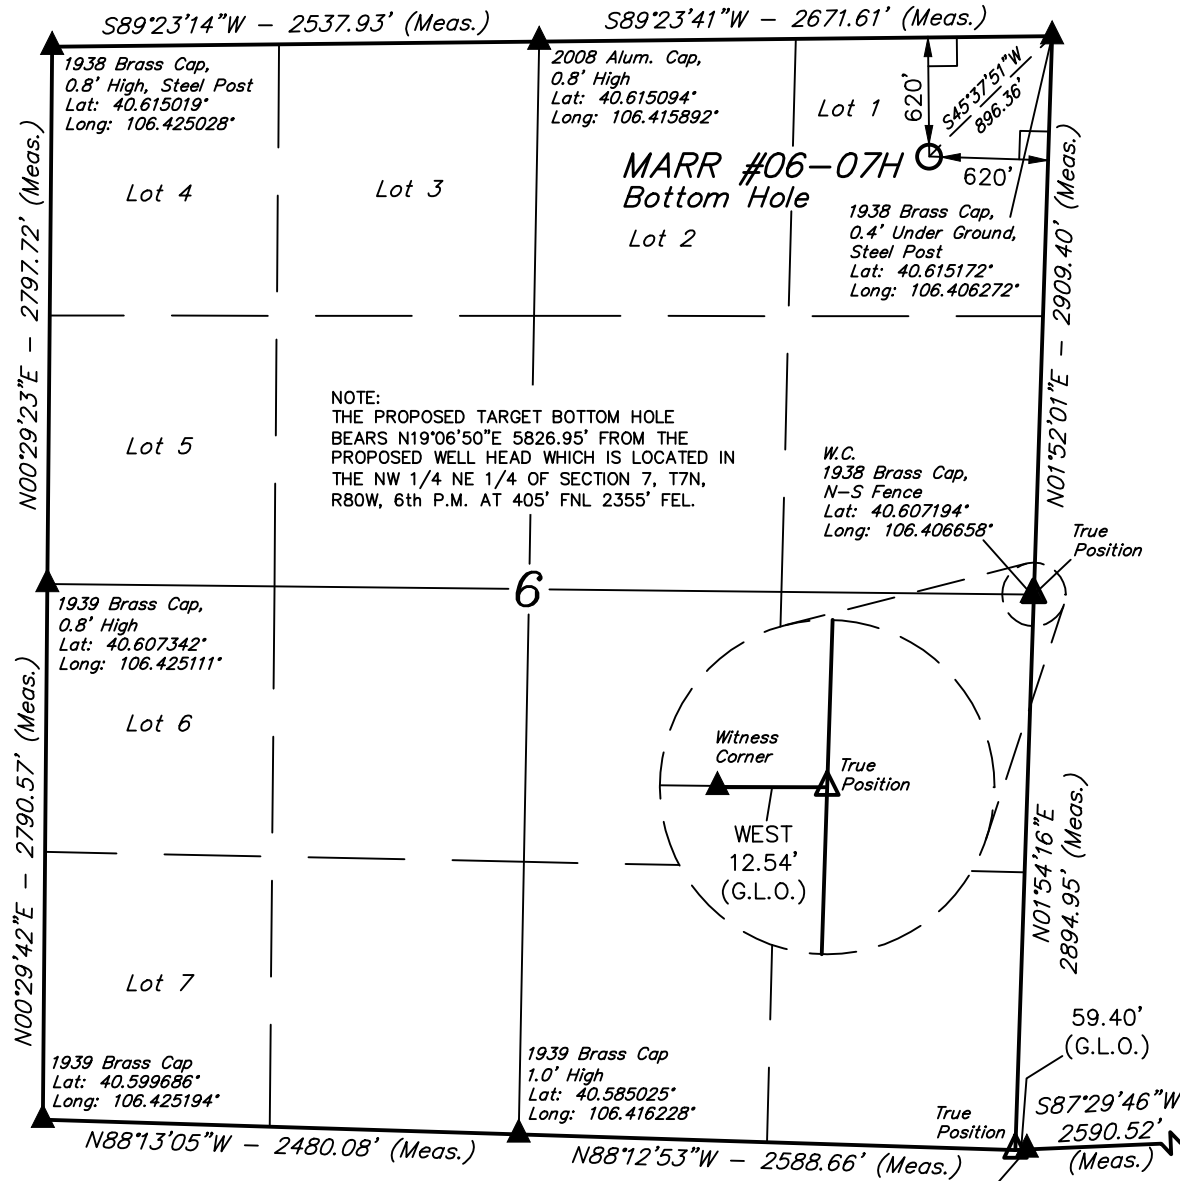 S89°23'14"W - 2537.93' (Meas.)
S89°23'41"W - 2671.61' (Meas.)
1938 Brass Cap,
0.8' High, Steel Post
Lat: 40.615019°
Long: 106.425028°
2008 Alum. Cap,
0.8' High
Lat: 40.615094°
Long: 106.415892°
Lot 1
620'
S45°37'51"W
896.36'
MARR #06-07H
Bottom Hole
620'
Lot 4
Lot 3
Lot 2
1938 Brass Cap,
0.4' Under Ground,
Steel Post
Lat: 40.615172°
Long: 106.406272°
N00°29'23"E - 2797.72' (Meas.)
N01°52'01"E - 2909.40' (Meas.)
NOTE:
THE PROPOSED TARGET BOTTOM HOLE
BEARS N19°06'50"E 5826.95' FROM THE
PROPOSED WELL HEAD WHICH IS LOCATED IN
THE NW 1/4 NE 1/4 OF SECTION 7, T7N,
R80W, 6th P.M. AT 405' FNL 2355' FEL.
Lot 5
W.C.
1938 Brass Cap,
N-S Fence
Lat: 40.607194°
Long: 106.406658°
True
Position
6
1939 Brass Cap,
0.8' High
Lat: 40.607342°
Long: 106.425111°
Lot 6
Witness
Corner
True
Position
WEST
12.54'
(G.L.O.)
N00°29'42"E - 2790.57' (Meas.)
N01°54'16"E
2894.95' (Meas.)
Lot 7
59.40'
(G.L.O.)
1939 Brass Cap
Lat: 40.599686°
Long: 106.425194°
1939 Brass Cap
1.0' High
Lat: 40.585025°
Long: 106.416228°
True
Position
S87°29'46"W
2590.52'
(Meas.)
N88°13'05"W - 2480.08' (Meas.)
N88°12'53"W - 2588.66' (Meas.)